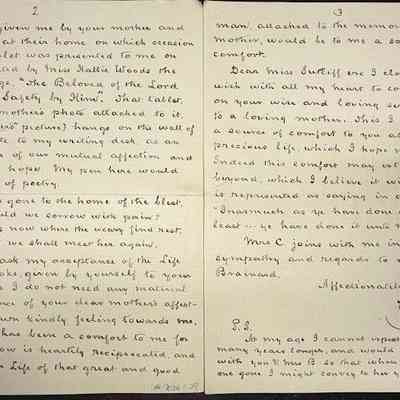 2
given me by your mother and
at their home on which occasion
blet was presented to me on
ed by Miss Hallie Woods the
ge, "The Beloved of the Lord
Safety by Him". That tablet,
mother's photo attached to it,
picture) hangs on the wall of
te to my writing desk as an
of our mutual affection and
hopes. My pen here would
of poetry.
gone to the home of the blest,
uld we sorrow with pain?
now where the weary find rest,
we shall meet her again.
ask my acceptance of the Life
oke, given by yourself to your
I do not need any material
nce of your dear mother's affect-
own kindly feeling towards me,
has been a comfort to me for
ow is heartily reciprocated, and
Life of that great and good
3
man, attached to the memor
mother, would be to me a so
comfort.
Dear Miss Sutliff one I clo
wish with all my heart to co
on your wise and loving se
to a loving mother. This I
a source of comfort to you al
precious life, which I hope
Indeed this comfort may
beyond, which I believe it wi
is represented as saying in
"Inasmuch as ye have done
least... ye have done it unto
Mrs C. joins with me in
sympathy and regards to
Brainard.
Affectionatel
P.S.
At my age I cannot expect
many years longer, and would
with you & Mrs B also that when
one gone I might convey to her y